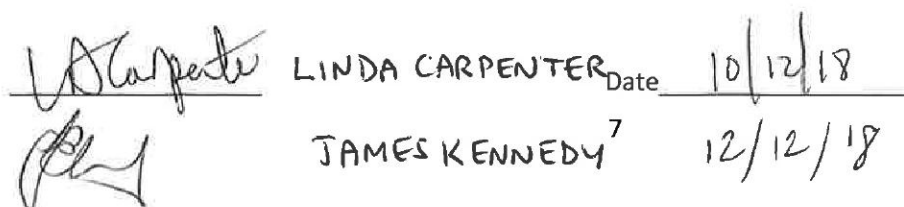 LACarpenter LINDA CARPENTER Date 10/12/18
JAMES KENNEDY 7 12/12/18